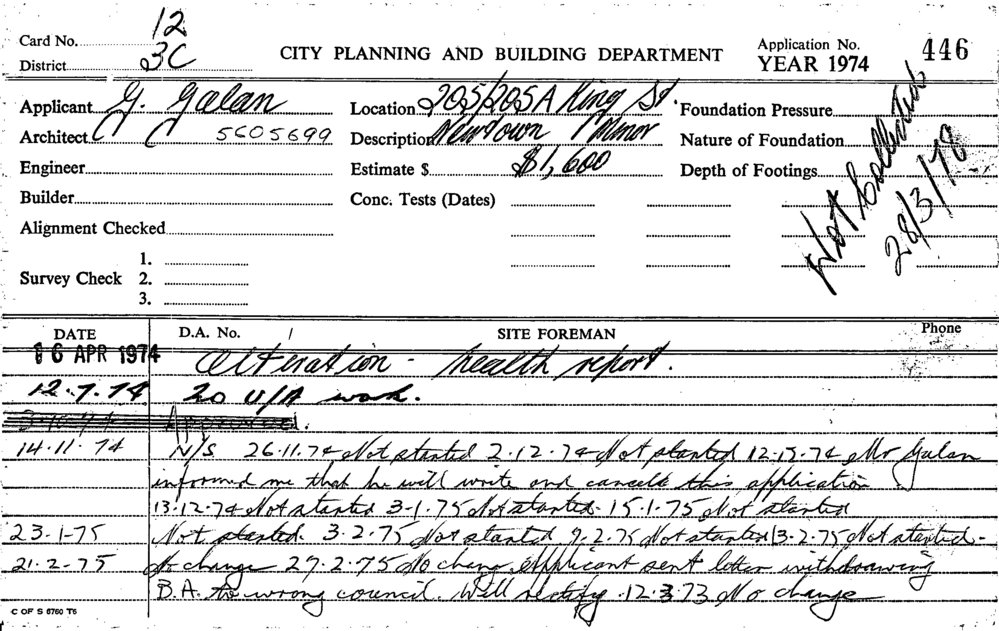 Card No. 12
District 3C
CITY PLANNING AND BUILDING DEPARTMENT
Application No. 446
YEAR 1974
Applicant G. Galan
Location 205/205A King St
Foundation Pressure
Architect 5605699
Description Newtown Minor
Nature of Foundation
Engineer
Estimate $ $1,600
Depth of Footings
Builder
Conc. Tests (Dates)
Not Collected
28/3/78
Alignment Checked
Survey Check 1.
2.
3.
DATE D.A. No. / SITE FOREMAN Phone
16 APR 1974 Alteration - health report.
12.7.74 20 U/A work.
14.11.74 N/S 26.11.74 Not started 2.12.74 Not started 12.12.74 Mr Galan
informed me that he will write and cancel this application
13.12.74 Not started 3.1.75 Not started 15.1.75 Not started
23.1.75 Not started. 3.2.75 Not started 9.2.75 Not started 13.2.75 Not started -
21.2.75 No change 27.2.75 No change. Applicant sent letter withdrawing
B.A. to wrong council. Will rectify. 12.3.73 No change
C OF S 6760 T5